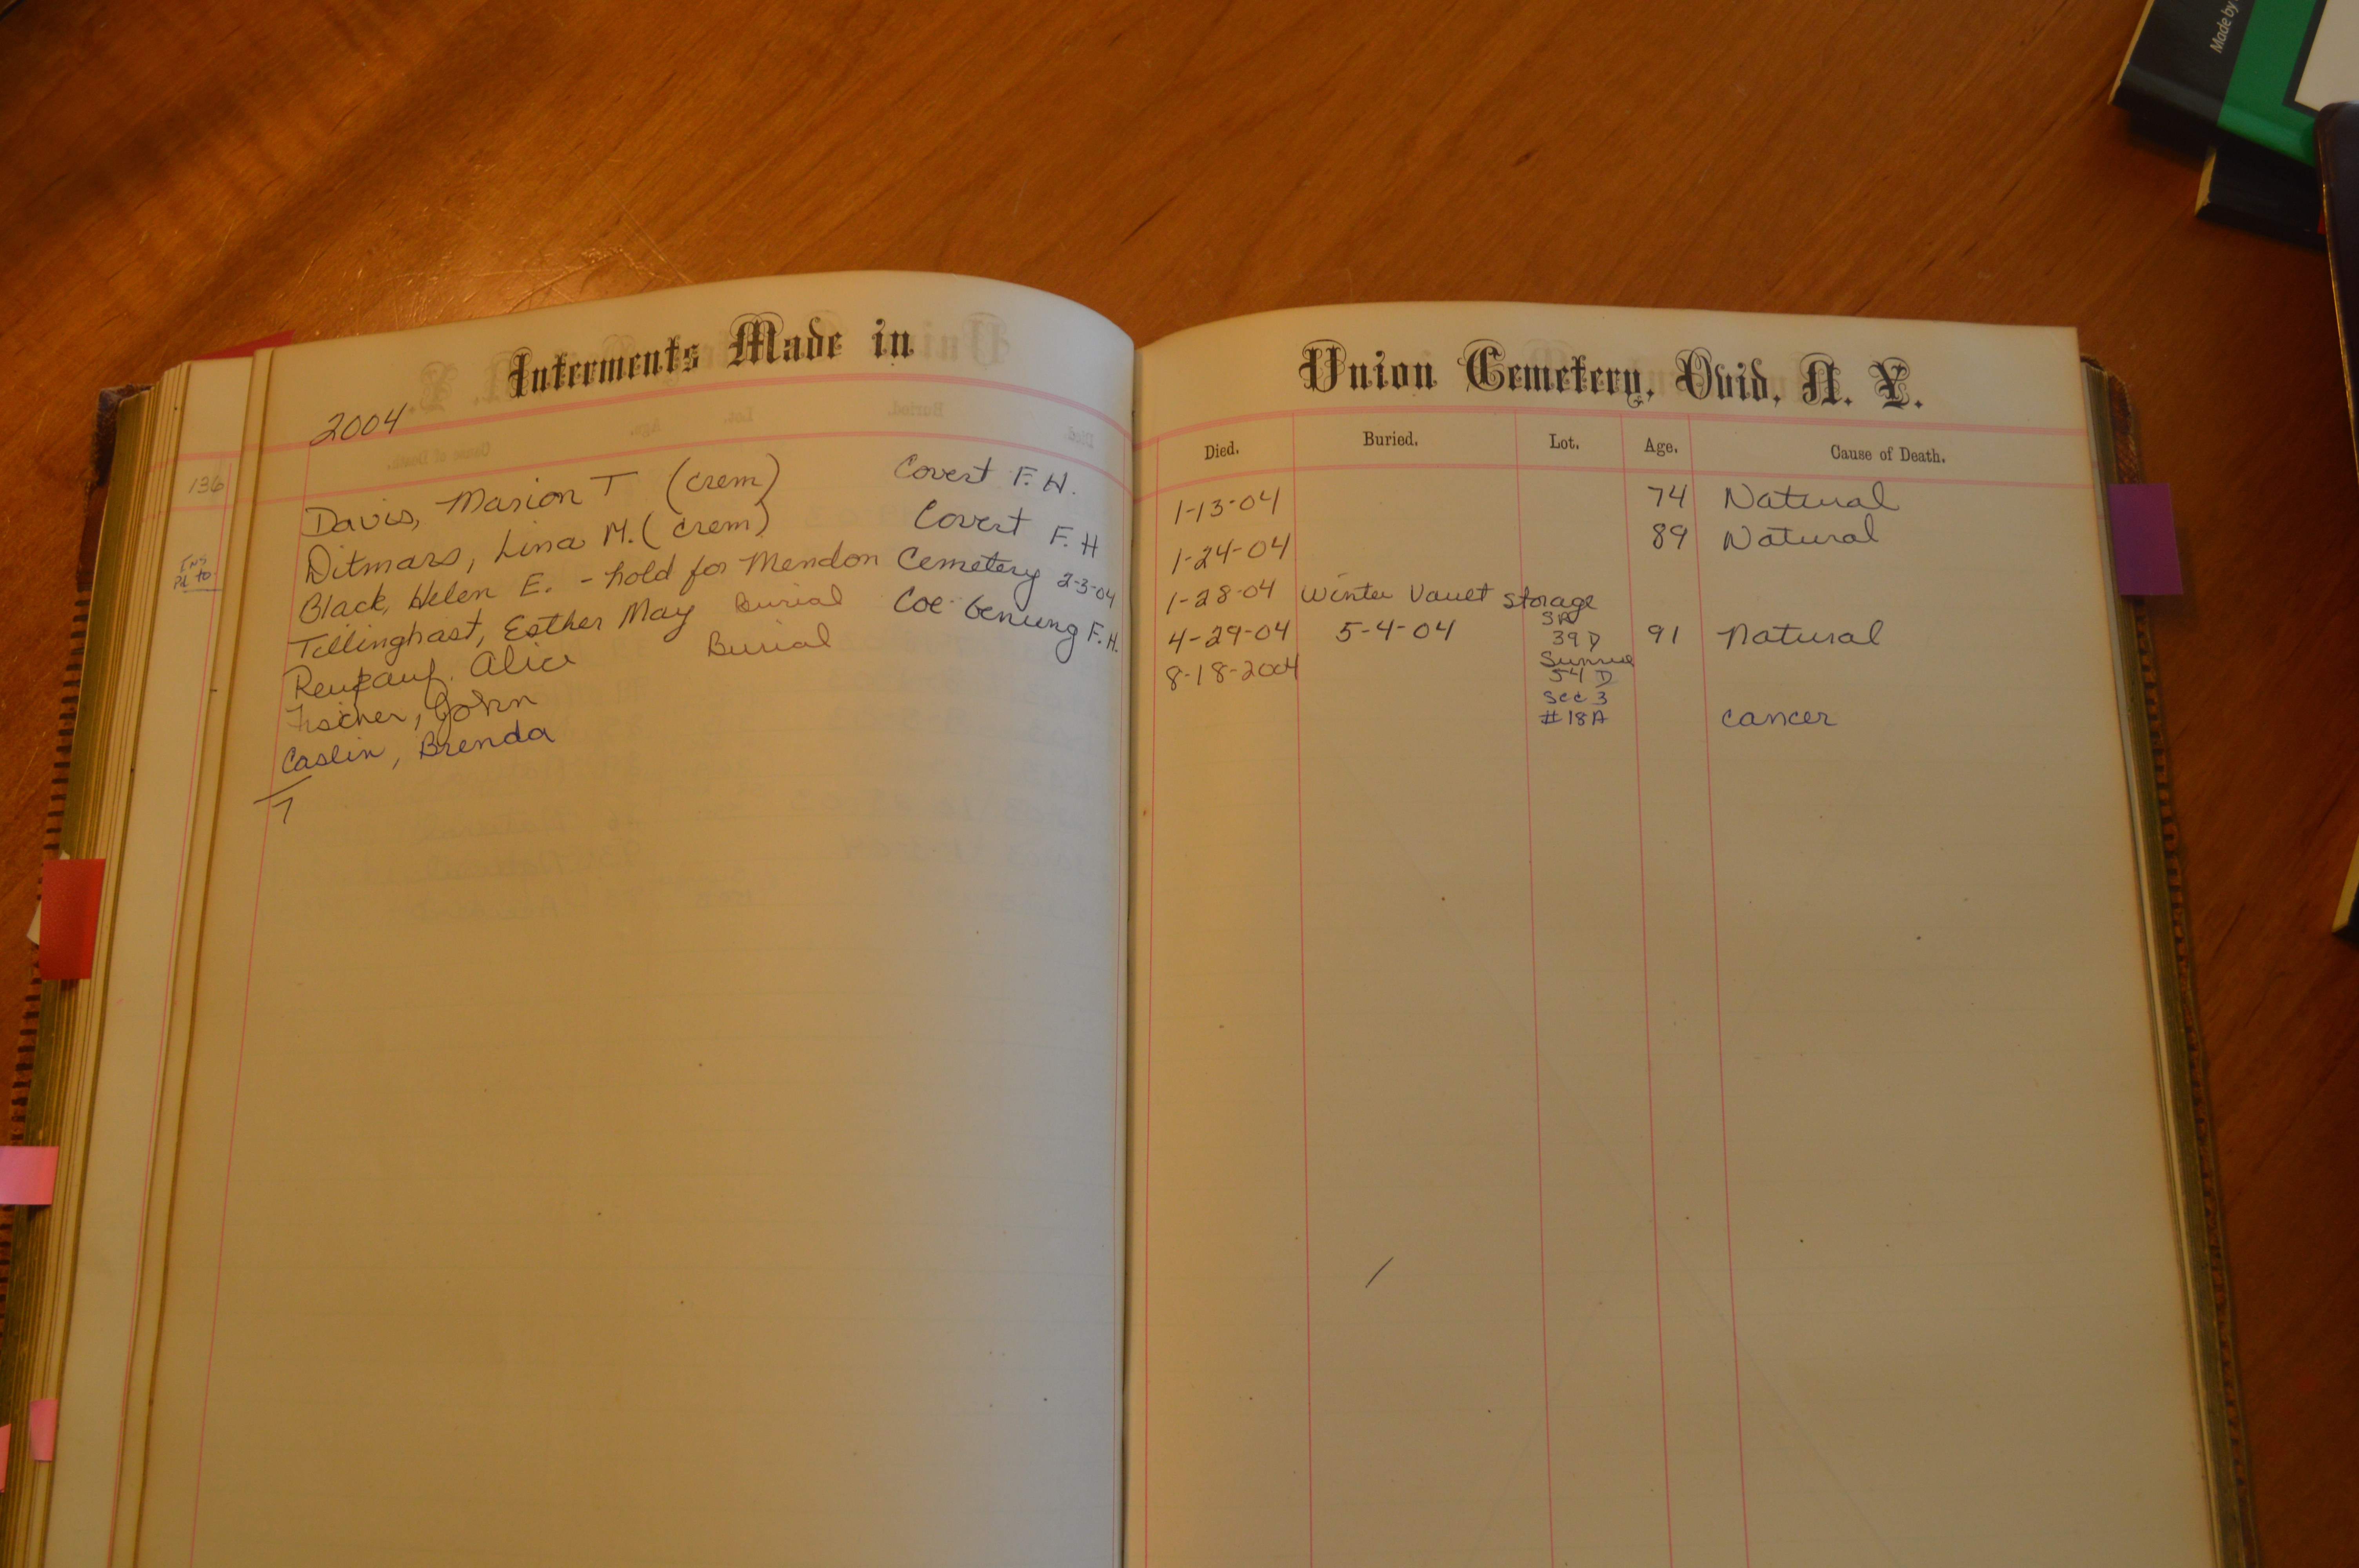 Made by
Interments Made in
2004
136
Davis, Marion T (crem) Covert F. H.
Ditmars, Lina M. (crem) Covert F. H
Black, Helen E. - hold for Mendon Cemetery 2-3-04
Tillinghast, Esther May Burial Coe-Genung F. H.
Alice Burial
Fischer, John
Caslin, Brenda
7
Union Cemetery, Ovid, N. Y.
Died. Buried. Lot. Age. Cause of Death.
1-13-04 74 Natural
1-24-04 89 Natural
1-28-04 Winter Vault Storage
SR
4-29-04 5-4-04 39 D 91 Natural
Sunrise
8-18-2004 54 D
Sec 3
#18A cancer